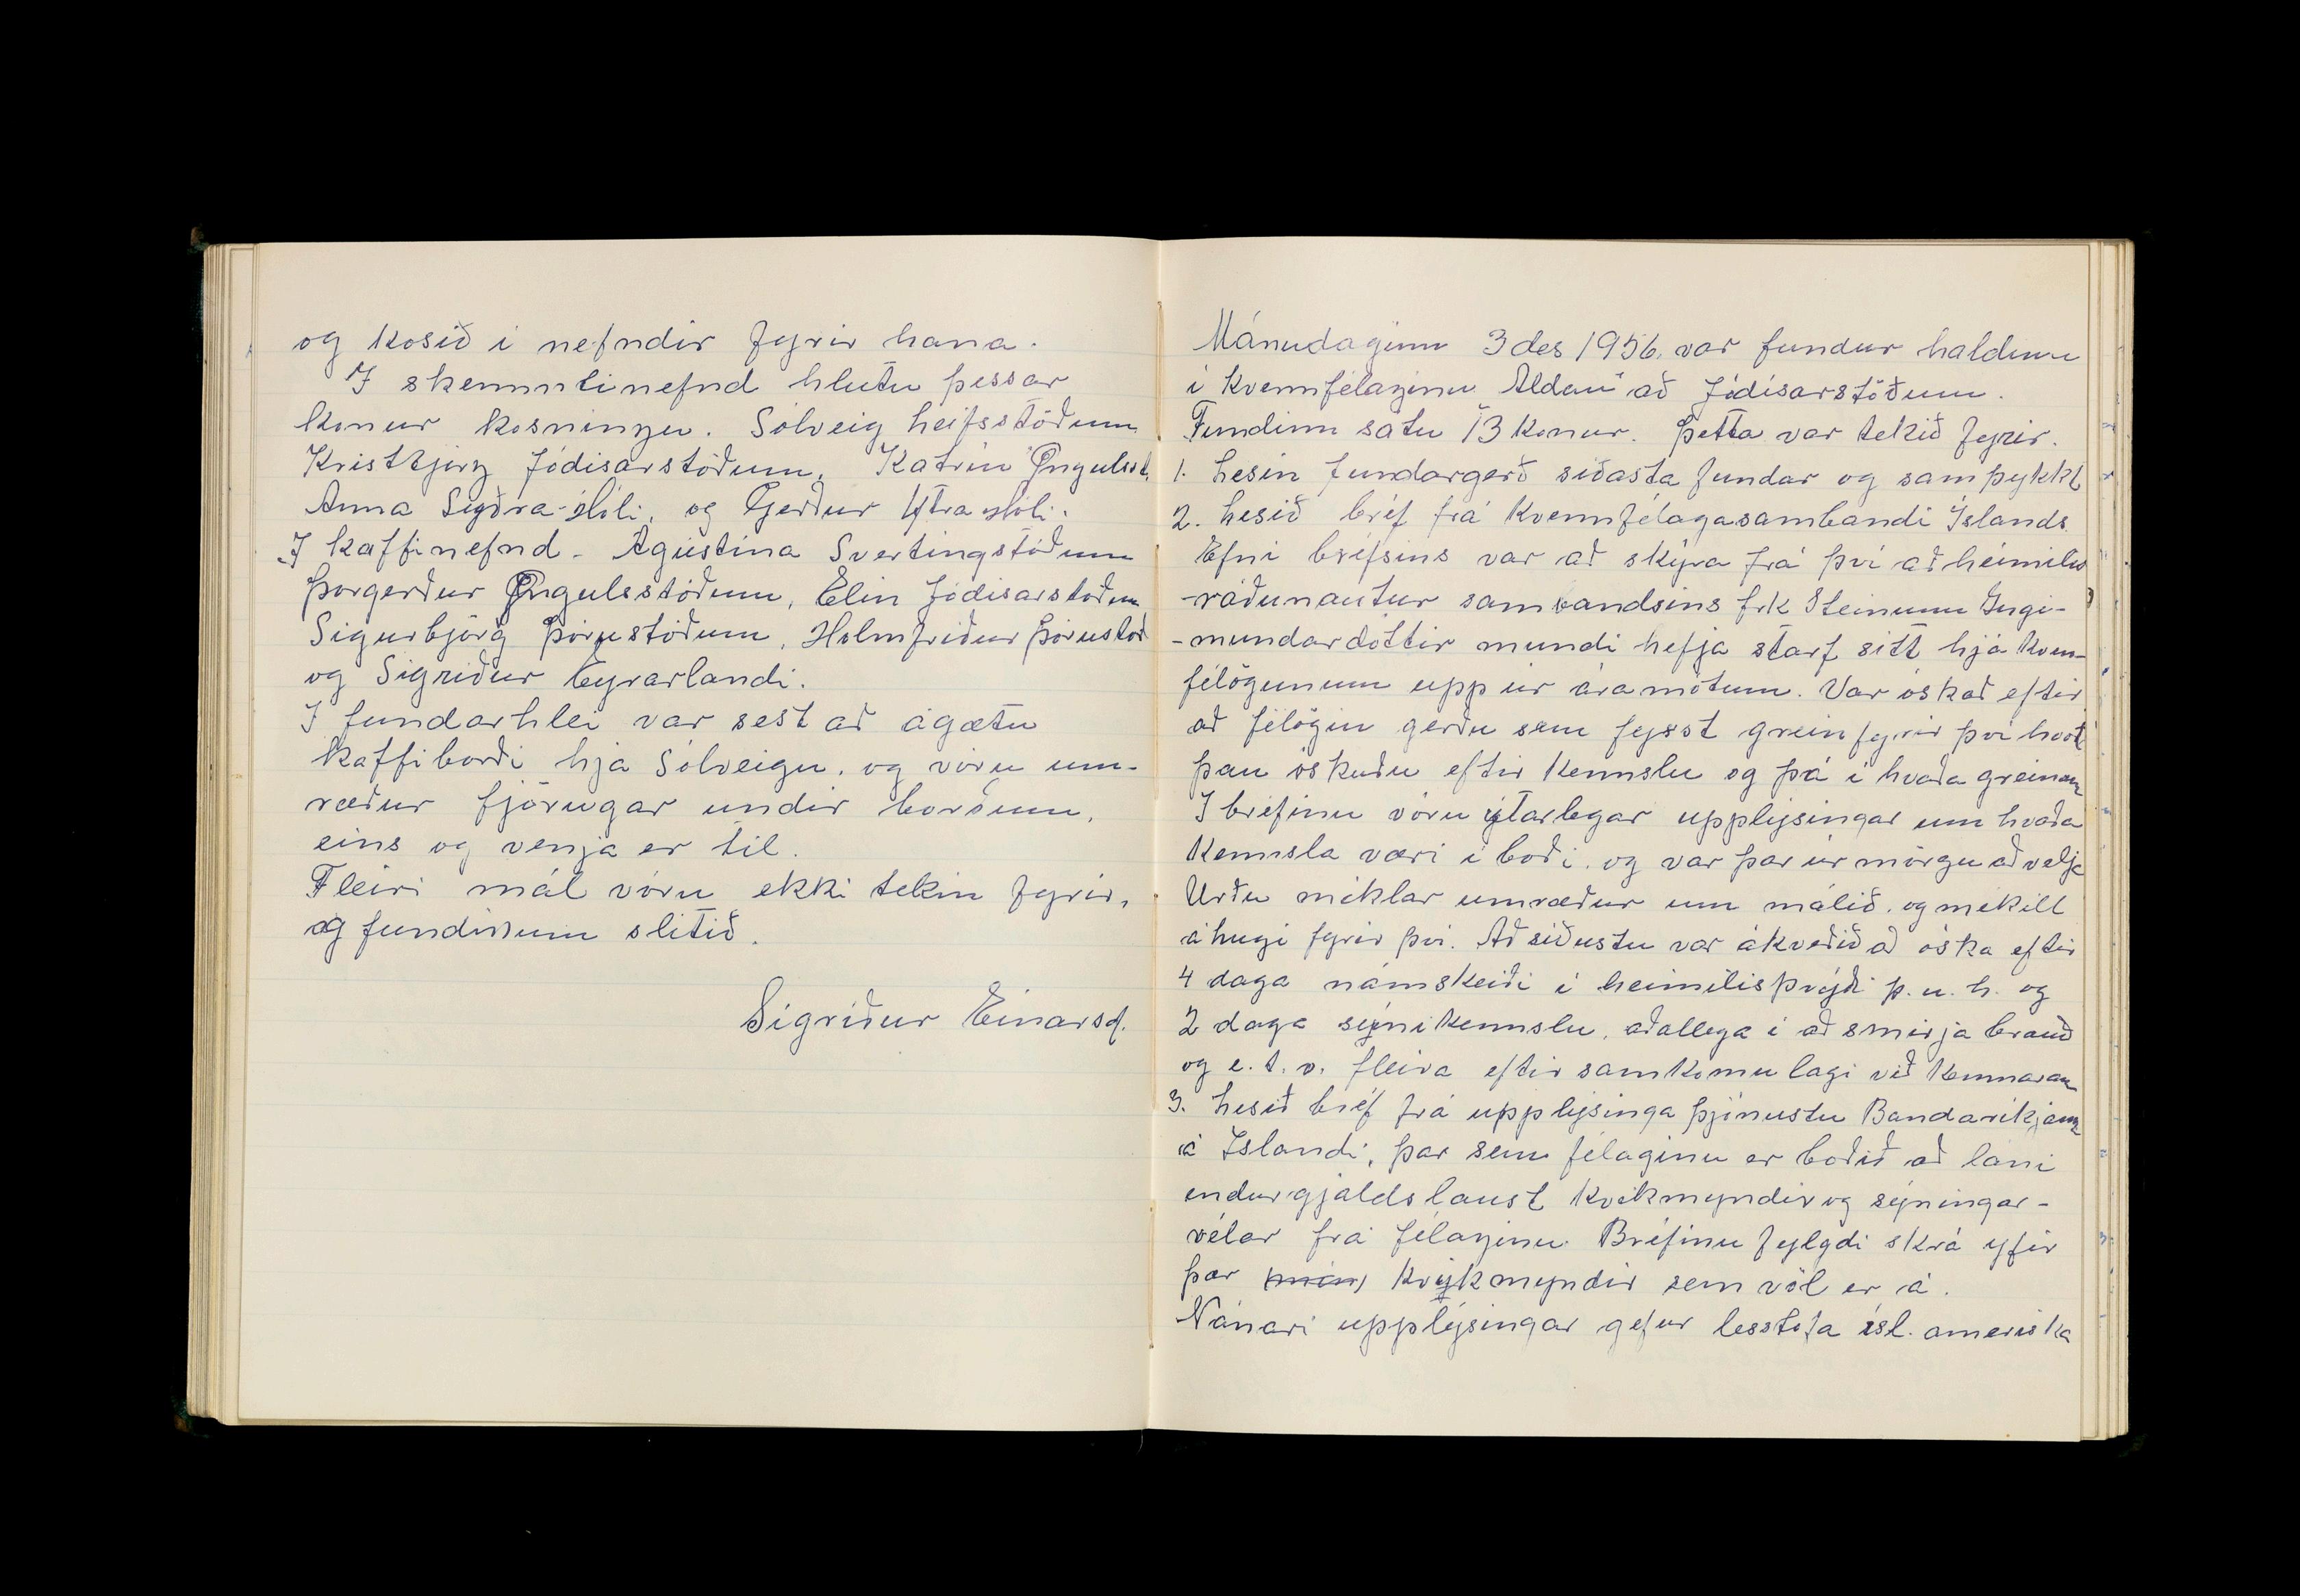 og kosið í nefndir fyrir hana.
Í skemmtinefnd hlutu þessar
konur kosningu. Sólveig Leifsstöðum
Kristbjörg Jódisarstöðum, Katrín Öngulsst.
Anna Syðra-Hóli, og Gerður Ytra Hóli.
Í kaffinefnd - Ágústína Svertingstöðum
Þorgerður Öngulsstöðum, Elin Jódisarstöðum
Sigurbjörg Þórustöðum, Holmfriður Þórustöð
og Sigriður Eyrarlandi.
Í fundarhlei var sest að ágætu
kaffiborði hjá Sólveigu, og vóru um-
ræður fjörugar undir borðum,
eins og venja er til.
Fleiri mál vóru ekki tekin fyrir,
og fundinum slitið.
Sigríður Einarsd.
Mánudaginn 3 des 1956. var fundur haldinn
í Kvennfélaginu Aldan" að Jódísarstöðum.
Fundinn satu 13 konur. Þetta var tekið fyrir.
1. Lesin fundargerð síðasta fundar og samþykkt
2. Lesið bréf frá Kvennfélagasambandi Íslands.
Efni bréfsins var að skýra frá því að heimilis
-ráðunautur sambandsins frk Steinunn Ingi-
-mundardóttir mundi hefja starf sitt hjá Kven-
félögunum upp úr áramótum. Var óskað eftir
að félögin gerðu sem fyrst grein fyrir því hvort
þau óskuðu eftir kennslu og þá í hvaða greinum
Í bréfinu vóru ýtarlegar upplýsingar um hvaða
kennsla væri í boði, og var þar úr mörgu að velja
Urðu miklar umræður um málið, og mikill
áhugi fyrir því. Að síðustu var ákveðið að óska eftir
4 daga námskeiði í heimilisprýði þ. u. h. og
2 daga sýnikennslu, aðallega í að smirja brauð
og e. t. v. fleira eftir samkomulagi við kennarann
3. Lesið bréf frá upplýsinga þjónustu Bandaríkjann
á Islandi, þar sem félaginu er boðið að láni
endurgjaldslaust kvikmyndir og sýningar-
vélar frá félaginu. Bréfinu fylgdi skrá yfir
þær kvikmyndir sem völ er á.
Nánari upplýsingar gefur lesstofa ísl. ameriska